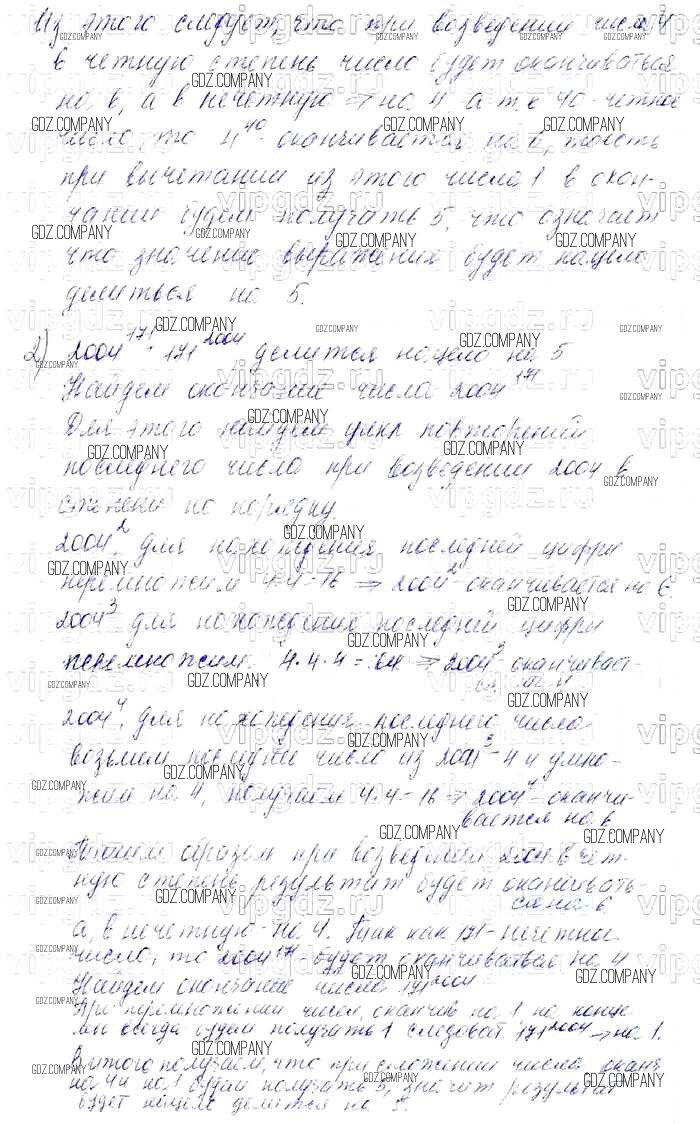 Из этого следует, что при возведении числа 4
в четную степень число будет оканчиваться
на 6, а в нечетную ⇒ на 4. а т.к 40 - четное
число, то 4^40 - оканчивается на 6, то есть
при вычитании из этого числа 1 в окон-
чании будем получать 5, что означает
что значение выражения будет нацело
делиться на 5.
2) 2004^171 + 171^2004 делится нацело на 5
Найдем окончание числа 2004^171
Для этого найдем цикл повторений
последнего числа при возведении 2004 в
степени по порядку.
2004^2, для нахождения последней цифры
перемножим 4·4=16 ⇒ 2004^2 - оканчивается на 6
2004^3 для нахождение последней цифры
перемножим. 4·4·4 = 64 ⇒ 2004^3 оканчивает-
ся на 4
2004^4, для нахождения последнего числа
возьмем последнее число из 2004^3 - 4 и умно-
жим на 4, получаем 4·4=16 ⇒ 2004^4 - оканчи-
вается на 6
Таким образом при возведении 2004 в чет-
ную степень, результат будет оканчивать-
ся на 6
а, в нечетную - на 4. Так как 171 - нечетное
число, то 2004^171 - будет оканчиваться на 4
Найдем окончание числа 171^2004
При перемножении чисел, оканчив на 1 на конце
мы всегда будем получать 1 следоват. 171^2004 ⇒ на 1.
В итоге получаем, что при сложении числа оканч.
на 4 и на 1 будем получать 5, значит результат
будет нацело делится на 5.
GDZ.COMPANY
vipgdz.ru